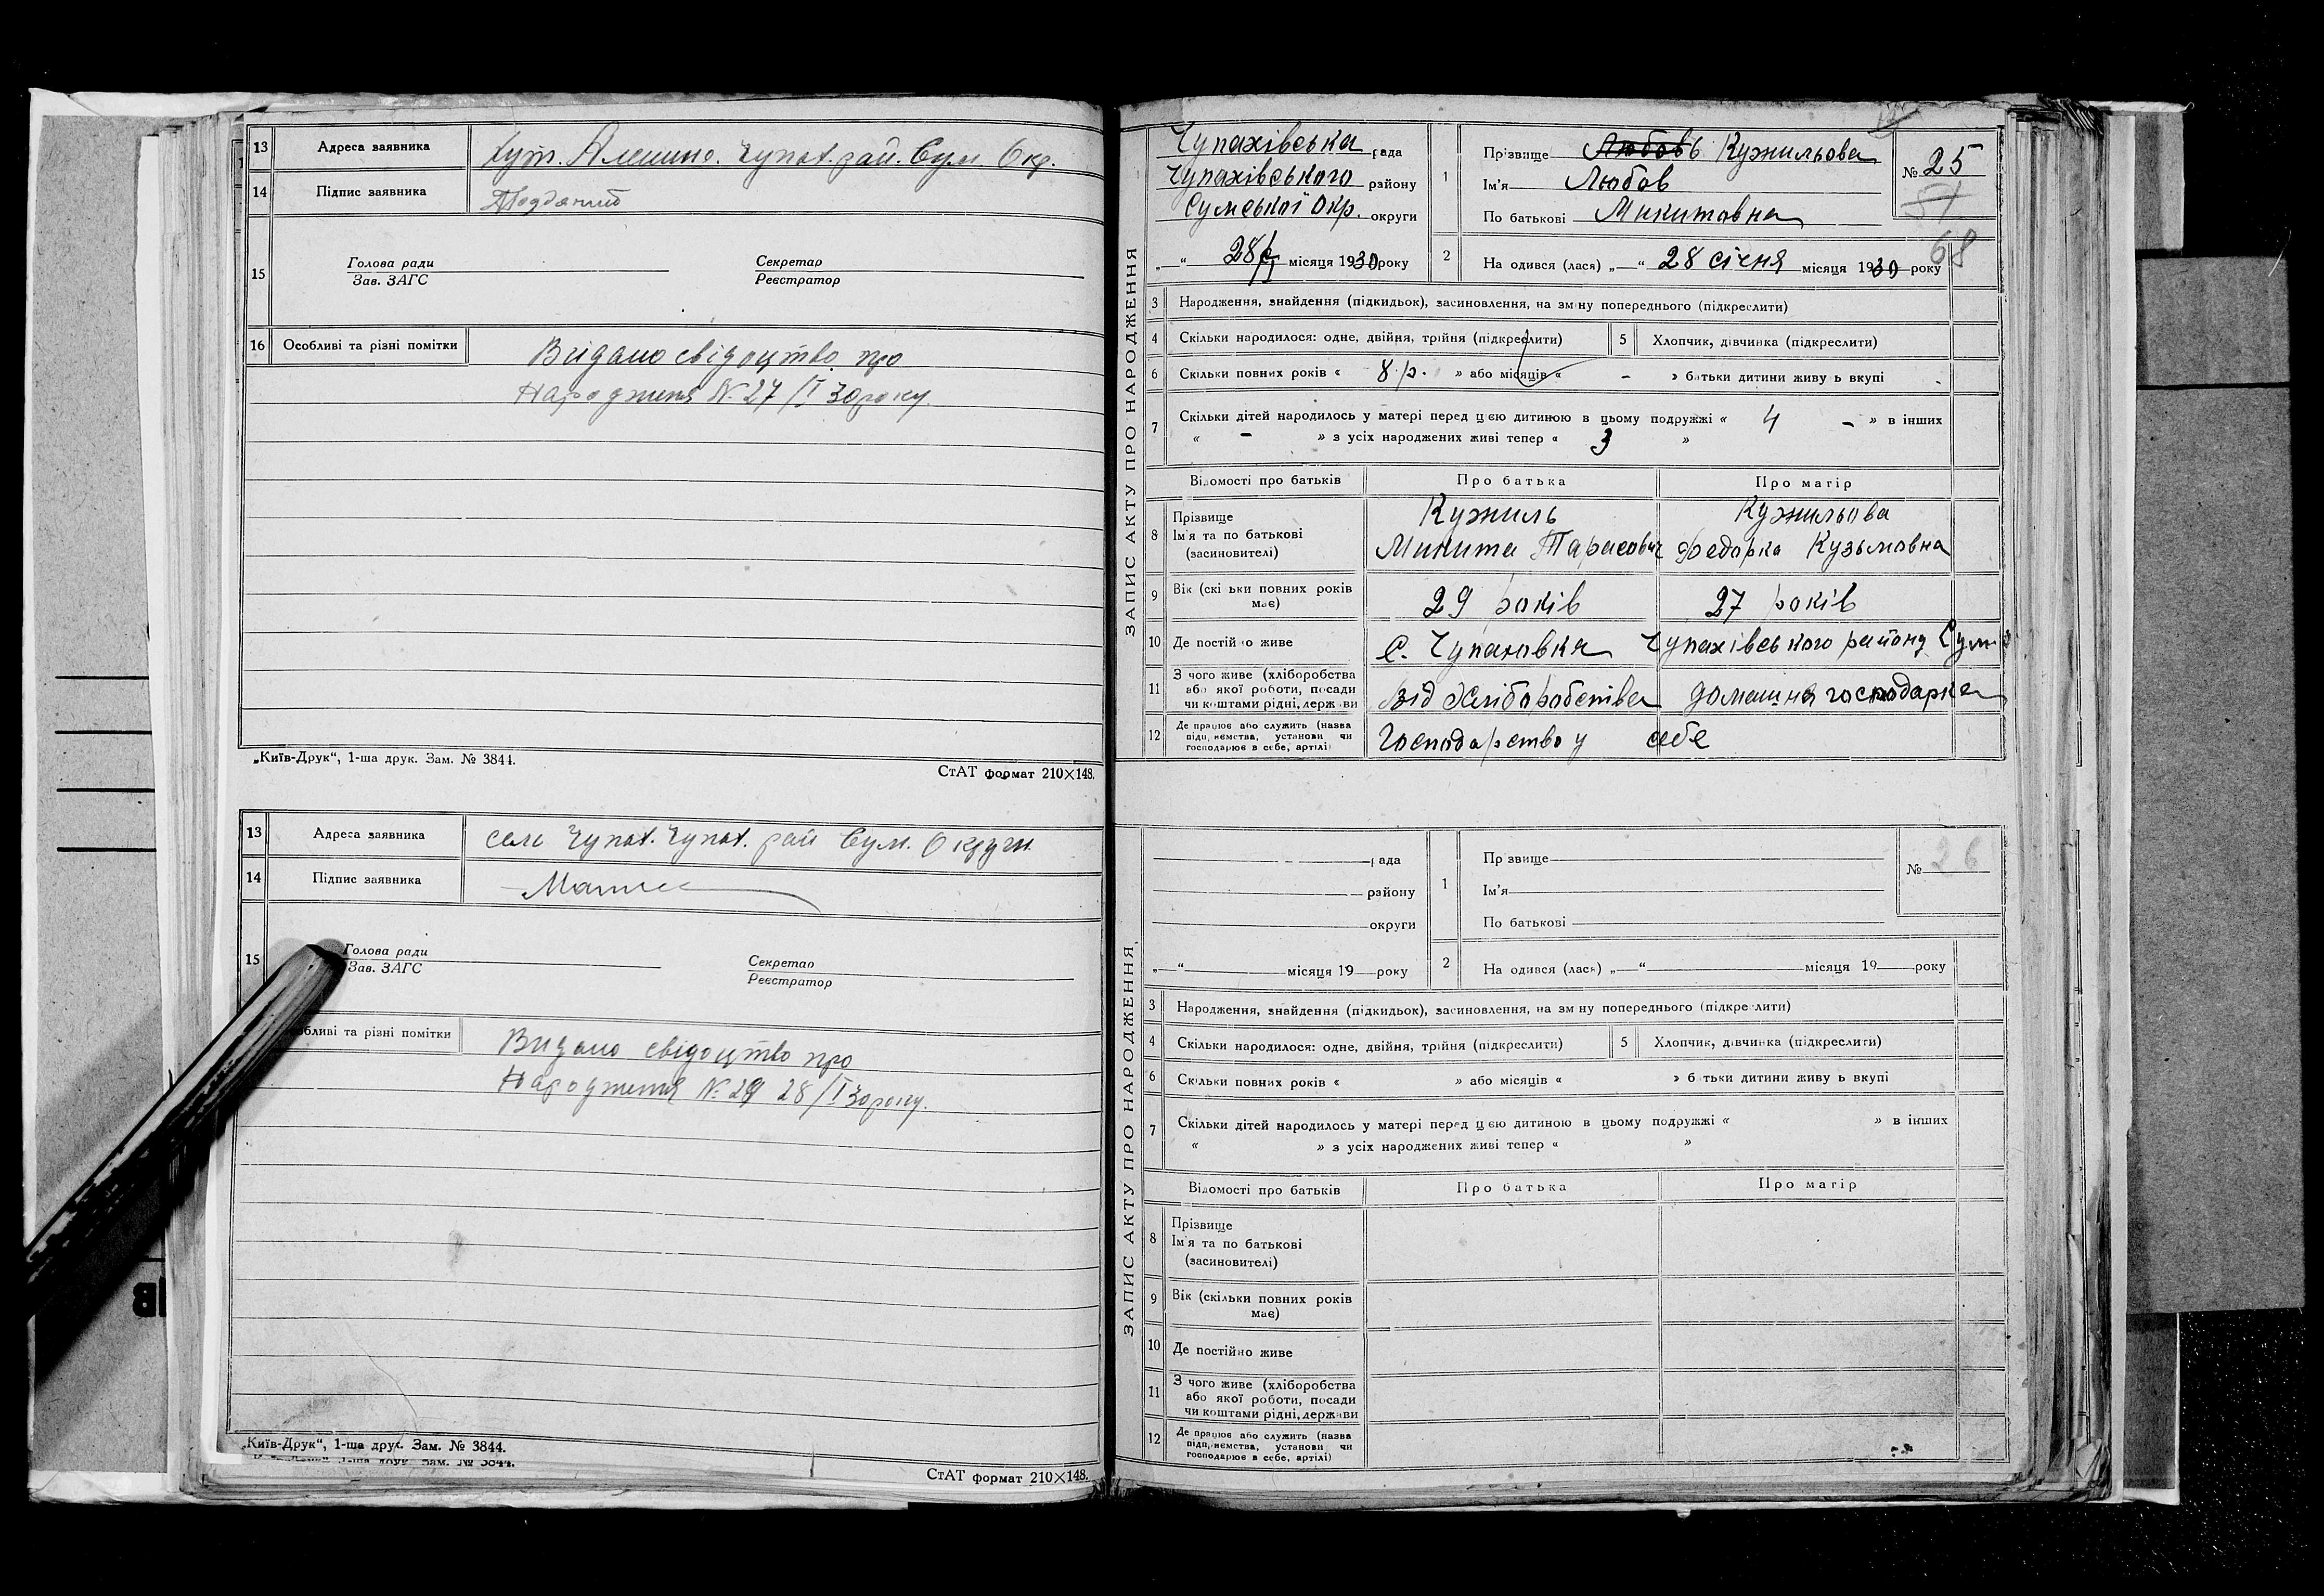 13 Адреса заявника хут. Алешино. Чупах. рай. Сум. Окр.
14 Підпис заявника
15 Голова ради Секретар
Зав. ЗАГС Реєстратор
16 Особливі та різні помітки Видано свідоцтво про
Народження № 27/I 30 року.
„Київ-Друк“, 1-ша друк. Зам. № 3844.
СтАТ формат 210×148.
13 Адреса заявника село Чупах. Чупах. рай Сум. Округи
14 Підпис заявника
15 Голова ради Секретар
Зав. ЗАГС Реєстратор
обливі та різні помітки Видано свідоцтво про
Народження № 29 28/I 30 року.
„Київ-Друк“, 1-ша друк. Зам. № 3844.
СтАТ формат 210×148.
ЗАПИС АКТУ ПРО НАРОДЖЕННЯ
Чупахівська рада
Чупахівського району
Сумської Окр. округи
„—“ 28/I місяця 1930 року
1 Прізвище Любовь Кужильова
Ім'я Любов
По батькові Микитовна
№ 25
51
68
2 На одився (лася) „—“ 28 січня місяця 1930 року
3 Народження, знайдення (підкидьок), засиновлення, на зміну попереднього (підкреслити)
4 Скільки народилося: одне, двійня, трійня (підкреслити) 5 Хлопчик, дівчинка (підкреслити)
6 Скільки повних років « 8 р. » або місяців « - » батьки дитини живу ь вкупі
7 Скільки дітей народилось у матері перед цією дитиною в цьому подружжі « 4 - » в інших
« - » з усіх народжених живі тепер « 3 »
Відомості про батьків Про батька Про матір
8 Прізвище Кужиль Кужильова
Ім'я та по батькові Микита Тарасович Федорка Кузьмовна
(засновителі)
9 Вік (скі ьки повних років має) 29 років 27 років
10 Де постійно живе с. Чупаховка Чупахівського району Сум
11 З чого живе (хліборобства або якої роботи, посади чи коштами рідні, держави від Хліборобства домашня господарка
12 Де працює або служить (назва підприємства, установи чи господарює в себе, артілі) Господарство у себе
ЗАПИС АКТУ ПРО НАРОДЖЕННЯ
рада
району
округи
„—“ місяця 19 року
1 Пр звище
Ім'я
По батькові
№ 26
2 На одився (лася) „—“ місяця 19 року
3 Народження, знайдення (підкидьок), засиновлення, на зміну попереднього (підкреслити)
4 Скільки народилося: одне, двійня, трійня (підкреслити) 5 Хлопчик, дівчинка (підкреслити)
6 Скільки повних років « » або місяців « » б тьки дитини живу ь вкупі
7 Скільки дітей народилось у матері перед цією дитиною в цьому подружжі « » в інших
« » з усіх народжених живі тепер « »
Відомості про батьків Про батька Про матір
8 Прізвище
Ім'я та по батькові
(засиновителі)
9 Вік (скільки повних років має)
10 Де постійно живе
11 З чого живе (хліборобства або якої роботи, посади чи коштами рідні, держави
12 Де працює або служить (назва підприємства, установи чи господарює в себе, артілі)